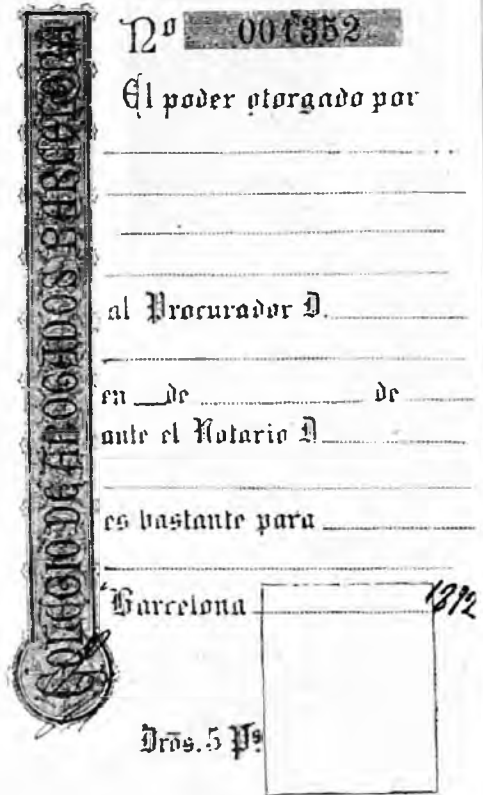 COLEGIO DE ABOGADOS BARCELONA
Nº 001352
El poder otorgado por
al Procurador D.
en de de
ante el Notario D
es bastante para
Barcelona 1892
Drōs. 5 Pˢ